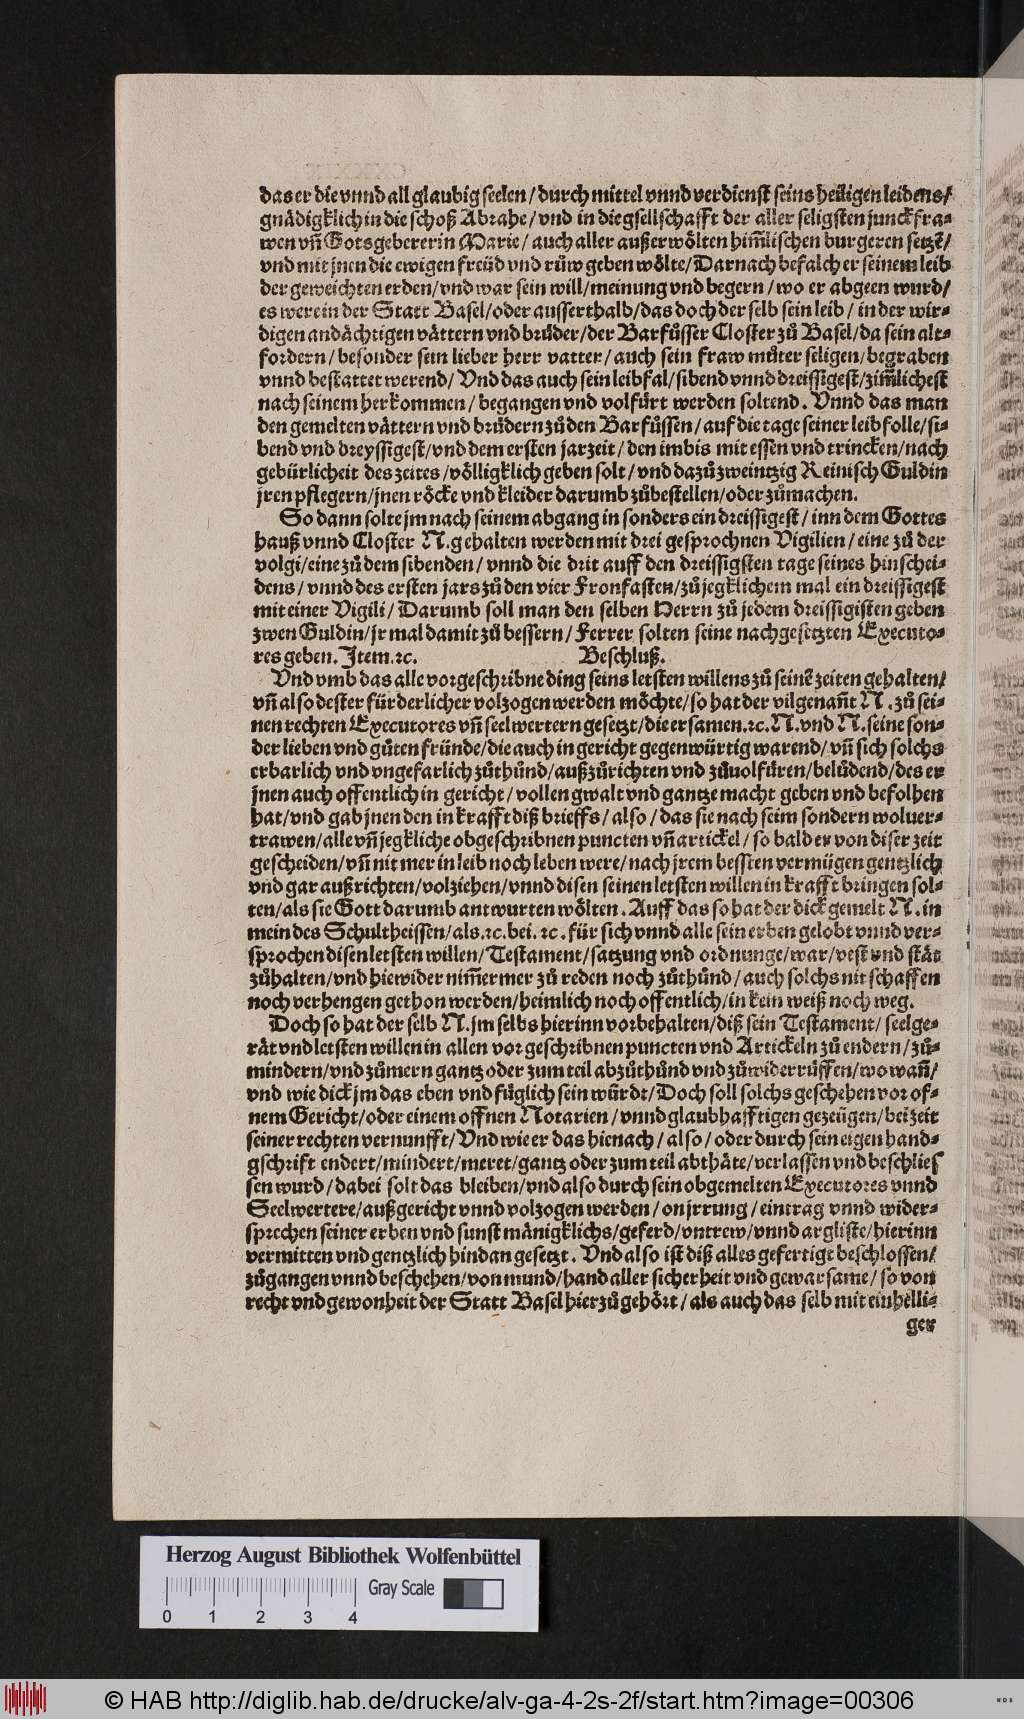 das er die vnnd all glaubig seelen / durch mittel vnnd verdienst seins heiligen leidens /
gnådigklich in die schoß Abrahe / vnd in die gsellschafft der aller seligsten junckfra⸗
wen vñ Gotsgebererin Marie / auch aller außerwölten him̃lischen burgeren setzẽ /
vnd mit jnen die ewigen freüd vnd růw geben wölte / Darnach befalch er seinem leib
der geweichten erden / vnd war sein will / meinung vnd begern / wo er abgeen wurd /
es were in der Statt Basel / oder ausserthalb / das doch der selb sein leib / in der wir⸗
digen andächtigen vättern vnd brüder / der Barfůsser Closter zů Basel / da sein alt⸗
fordern / besonder sein lieber herr vatter / auch sein fraw můter seligen / begraben
vnnd bestattet werend / Vnd das auch sein leibfal / sibend vnnd dreissigest / zim̃lichest
nach seinem herkommen / begangen vnd volfürt werden soltend. Vnnd das man
den gemelten vättern vnd brüdern zů den Barfůssen / auf die tage seiner leibfolle / si⸗
bend vnd dreyssigest / vnd dem ersten jarzeit / den imbis mit essen vnd trincken / nach
gebürlicheit des zeites / völligklich geben solt / vnd dazů zweintzig Reinisch Guldin
jren pflegern / jnen röcke vnd kleider darumb zůbestellen / oder zůmachen.
So dann solte jm nach seinem abgang in sonders ein dreissigest / inn dem Gottes
hauß vnnd Closter N. gehalten werden mit drei gesprochnen Vigilien / eine zů der
volgi / eine zů dem sibenden / vnnd die drit auff den dreissigsten tage seines hinschei⸗
dens / vnnd des ersten jars zů den vier Fronfasten / zů jegklichem mal ein dreissigest
mit einer Vigili / Darumb soll man den selben Herrn zů jedem dreissigisten geben
zwen Guldin / jr mal damit zů bessern / Ferrer solten seine nachgesetzten Executo⸗
res geben. Item. ꝛc. Beschluß.
Vnd vmb das alle vorgeschribne ding seins letsten willens zů seinẽ zeiten gehalten /
vñ also dester fürderlicher volzogen werden möchte / so hat der vilgenañt N. zů sei⸗
nen rechten Executores vñ seelwertern gesetzt / die ersamen. ꝛc. N. vnd N. seine son⸗
der lieben vnd gůten fründe / die auch in gericht gegenwürtig warend / vñ sich solchs
erbarlich vnd vngefarlich zůthůnd / außzůrichten vnd zůuolfüren / belůdend / des er
jnen auch offentlich in gericht / vollen gwalt vnd gantze macht geben vnd befolhen
hat / vnd gab jnen den in krafft diß brieffs / also / das sie nach seim sondern woluer⸗
trawen / alle vñ jegkliche obgeschribnen puncten vñ artickel / so bald er von diser zeit
gescheiden / vñ nit mer in leib noch leben were / nach jrem bessten vermügen gentzlich
vnd gar außrichten / volziehen / vnnd disen seinen letsten willen in krafft bringen sol⸗
ten / als sie Gott darumb antwurten wölten. Auff das so hat der dick gemelt N. in
mein des Schultheissen / als. ꝛc. bei. ꝛc. für sich vnnd alle sein erben gelobt vnnd ver⸗
sprochen disen letsten willen / Testament / satzung vnd ordnunge / war / vest vnd stät
zůhalten / vnd hiewider nim̃ermer zů reden noch zůthůnd / auch solchs nit schaffen
noch verhengen gethon werden / heimlich noch offentlich / in kein weiß noch weg.
Doch so hat der selb N. jm selbs hierinn vorbehalten / diß sein Testament / seelge⸗
rät vnd letsten willen in allen vorgeschribnen puncten vnd Artickeln zů endern / zů⸗
mindern / vnd zůmern gantz oder zum teil abzůthůnd vnd zůwiderrůffen / wo wañ /
vnd wie dick jm das eben vnd füglich sein würdt / Doch soll solchs geschehen vor of⸗
nem Gericht / oder einem offnen Notarien / vnnd glaubhafftigen gezeügen / bei zeit
seiner rechten vernunfft / Vnd wie er das hienach / also / oder durch sein eigen hand⸗
gschrift endert / mindert / meret / gantz oder zum teil abthäte / verlassen vnd beschlies
sen wurd / dabei solt das bleiben / vnd also durch sein obgemelten Executores vnnd
Seelwertere / außgericht vnnd volzogen werden / on jrrung / eintrag vnnd wider⸗
sprechen seiner erben vnd sunst mänigklichs / geferd / vntrew / vnnd argliste / hierinn
vermitten vnd gentzlich hindan gesetzt. Vnd also ist diß alles gefertigt beschlossen /
zůgangen vnnd beschehen / von mund / hand aller sicherheit vnd gewarsame / so von
recht vnd gewonheit der Statt Basel hierzů gehört / als auch das selb mit einhelli⸗
ger
Herzog August Bibliothek Wolfenbüttel
Gray Scale
0 1 2 3 4
© HAB http://diglib.hab.de/drucke/alv-ga-4-2s-2f/start.htm?image=00306